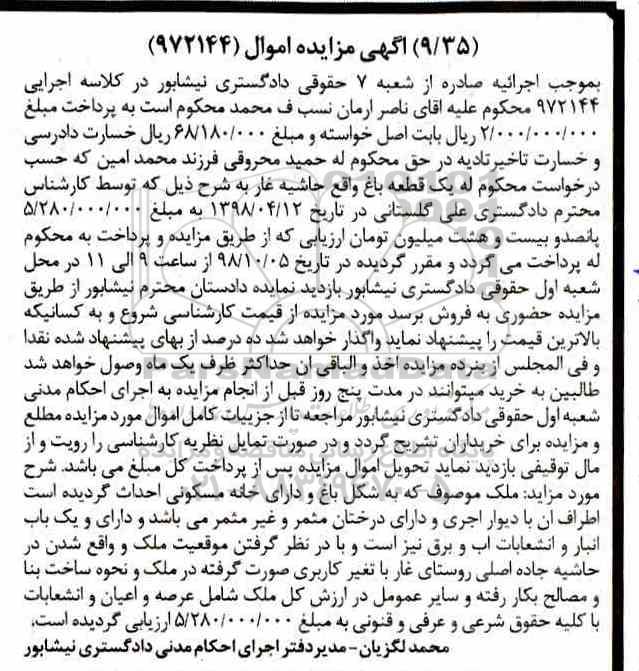 (۹/۳۵) آگهی مزایده اموال (۹۷۲۱۴۴)
بموجب اجرائیه صادره از شعبه ۷ حقوقی دادگستری نیشابور در کلاسه اجرایی
۹۷۲۱۴۴ محکوم علیه اقای ناصر ارمان نسب ف محمد محکوم است به پرداخت مبلغ
۲/۰۰۰/۰۰۰/۰۰۰ ریال بابت اصل خواسته و مبلغ ۶۸/۱۸۰/۰۰۰ ریال خسارت دادرسی
و خسارت تاخیرتادیه در حق محکوم له حمید محروقی فرزند محمد امین که حسب
درخواست محکوم له یک قطعه باغ واقع حاشیه غار به شرح ذیل که توسط کارشناس
محترم دادگستری علی گلستانی در تاریخ ۱۳۹۸/۰۴/۱۲ به مبلغ ۵/۲۸۰/۰۰۰/۰۰۰
پانصدو بیست و هشت میلیون تومان ارزیابی که از طریق مزایده و پرداخت به محکوم
له پرداخت می گردد و مقرر گردیده در تاریخ ۹۸/۱۰/۰۵ از ساعت ۹ الی ۱۱ در محل
شعبه اول حقوقی دادگستری نیشابور بازدید نمایده دادستان محترم نیشابور از طریق
مزایده حضوری به فروش برسد مورد مزایده از قیمت کارشناسی شروع و به کسانیکه
بالاترین قیمت را پیشنهاد نماید واگذار خواهد شد ده درصد از بهای پیشنهاد شده نقدا
و فی المجلس از بنرده مزایده اخذ و الباقی ان حداکثر ظرف یک ماه وصول خواهد شد
طالبین به خرید میتوانند در مدت پنج روز قبل از انجام مزایده به اجرای احکام مدنی
شعبه اول حقوقی دادگستری نیشابور مراجعه تا از جزییات کامل اموال مورد مزایده مطلع
و مزایده برای خریداران تشریح گردد و در صورت تمایل نظریه کارشناسی را رویت و از
مال توقیفی بازدید نماید تحویل اموال مزایده پس از پرداخت کل مبلغ می باشد. شرح
مورد مزاید: ملک موصوف که به شکل باغ و دارای خانه مسکونی احداث گردیده است
اطراف ان با دیوار اجری و دارای درختان مثمر و غیر مثمر می باشد و دارای و یک باب
انبار و انشعابات اب و برق نیز است و با در نظر گرفتن موقعیت ملک و واقع شدن در
حاشیه جاده اصلی روستای غار با تغیر کاربری صورت گرفته در ملک و نحوه ساخت بنا
و مصالح بکار رفته و سایر عمومل در ارزش کل ملک شامل عرصه و اعیان و انشعابات
با کلیه حقوق شرعی و عرفی و قنونی به مبلغ ۵/۲۸۰/۰۰۰/۰۰۰ ارزیابی گردیده است.
محمد لگزیان - مدیر دفتر اجرای احکام مدنی دادگستری نیشابور